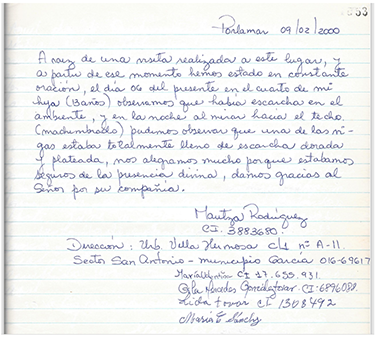 Porlamar 09/02/2000
A raiz de una visita realizada a este lugar, y
a partir de ese momento hemos estado en constante
oración, el día 06 del presente en el cuarto de mi
hija (Baños) observamos que habia escarcha en el
ambiente, y en la noche al mirar hacia el techo.
(machimbrado) pudimos observar que una de las vi-
gas estaba totalmente lleno de escarcha dorada
y plateada, nos alegramos mucho porque estabamos
seguros de la presencia divina, damos gracias al
Señor por su compañia.
Maritza Rodríguez
CI. 3883680.
Dirección: Urb. Villa Hermosa c/1 nº A-11.
Sector San Antonio - municipio García 016-69617
María CI 17.655.931.
Mercedes CI. 6896088.
Lida Tovar CI 1308492
María E Sánchez